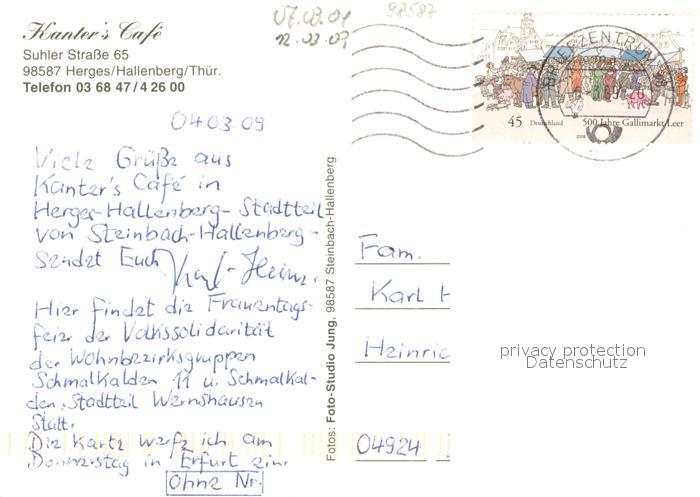 Kanter's Café
Suhler Straße 65
98587 Herges/Hallenberg/Thür.
Telefon 03 68 47/4 26 00
98587
12.03.09
BRIEFZENTRUM
45 Deutschland 500 Jahre Gallimarkt Leer
2008
04.03.09
Viele Grüße aus
Kanter's Café in
Herges-Hallenberg-Stadtteil
von Steinbach-Hallenberg-
Sendet Euch
Hier findet die Frauentags-
feier der Volkssolidarität
der Wohnbezirksgruppen
Schmalkalden 11 u. Schmalkal-
den, Stadtteil Wernshausen
Statt.
Die Karte werfe ich am
Donnerstag in Erfurt ein.
Ohne Nr.
Fotos: Foto-Studio Jung, 98587 Steinbach-Hallenberg
Fam.
Karl H
Heinric
04924
privacy protection
Datenschutz